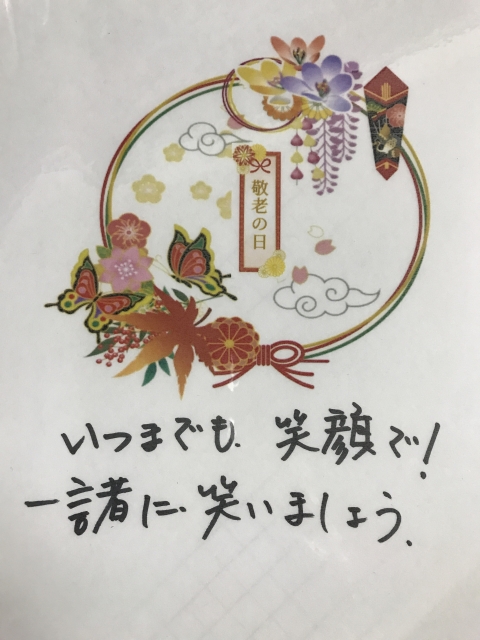 敬老の日
いつまでも 笑顔で!
一諸に 笑いましょう.